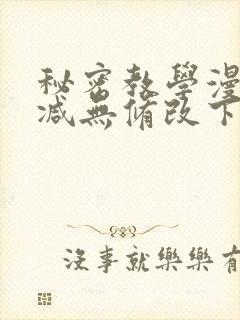 秘密教學漫
减無脩改下
沒事就樂樂有